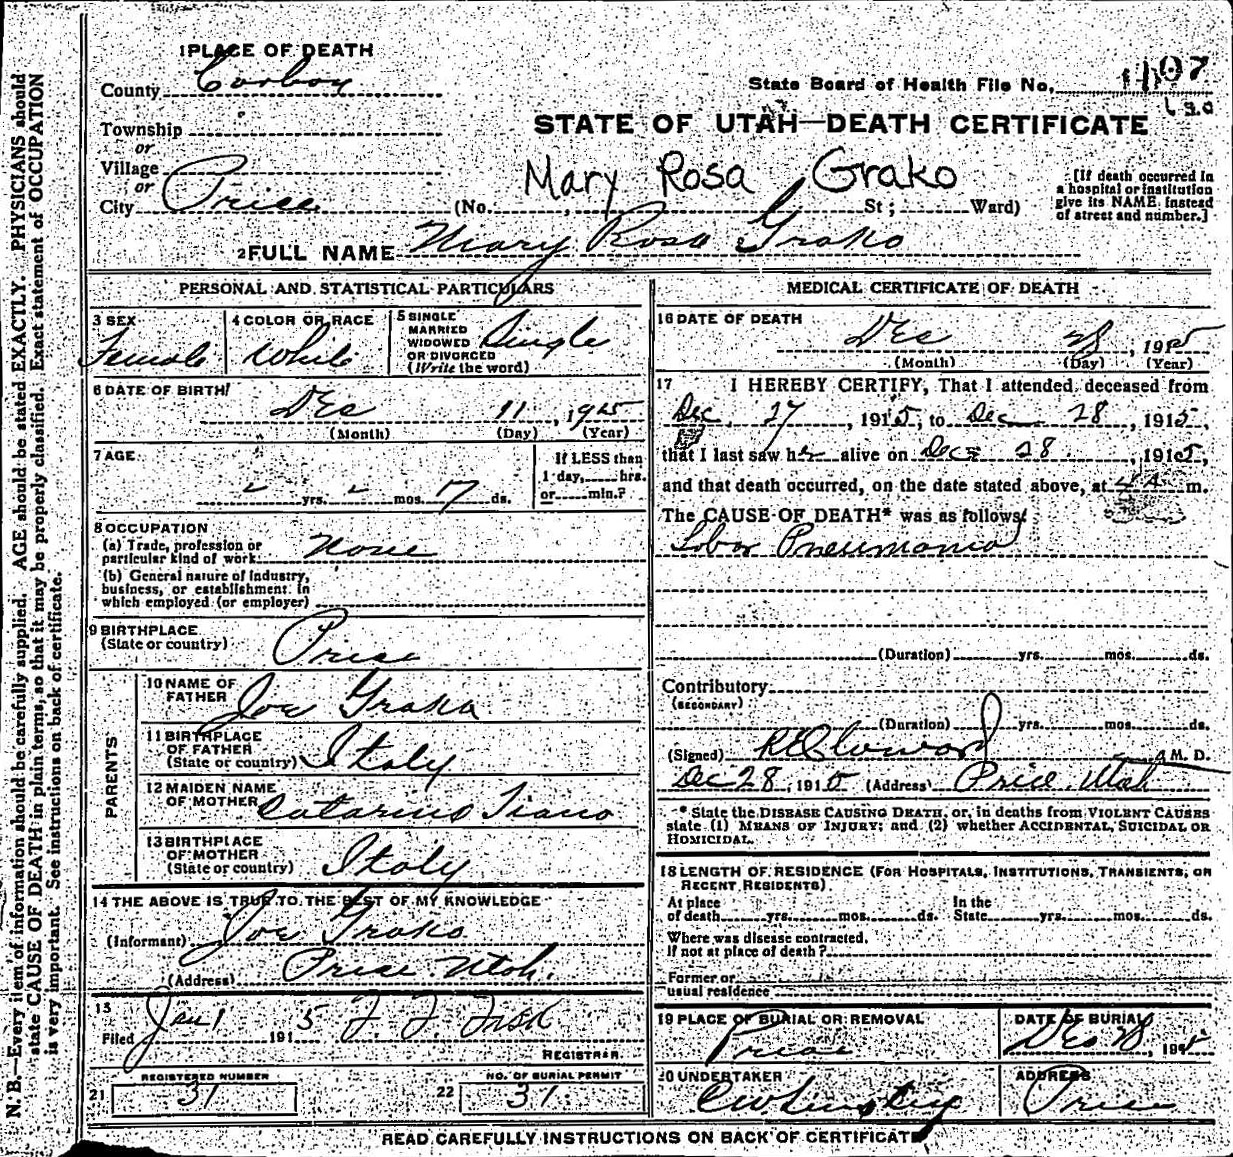 1 PLACE OF DEATH
County Carbon
State Board of Health File No.
Township
or
STATE OF UTAH—DEATH CERTIFICATE
Village
or
Mary Rosa Grako
City Price (No. St; Ward)
[If death occurred in a hospital or institution give its NAME instead of street and number.]
2 FULL NAME Mary Rosa Grako
PERSONAL AND STATISTICAL PARTICULARS
3 SEX
Female
4 COLOR OR RACE
White
5 SINGLE
MARRIED
WIDOWED
OR DIVORCED
(Write the word)
Single
6 DATE OF BIRTH
Dec 11, 1915
(Month) (Day) (Year)
7 AGE
yrs. mos. 17 ds.
If LESS than
1 day, hrs.
or min.?
8 OCCUPATION
(a) Trade, profession or
particular kind of work None
(b) General nature of industry,
business, or establishment in
which employed (or employer)
9 BIRTHPLACE
(State or country) Price
PARENTS
10 NAME OF
FATHER Joe Grako
11 BIRTHPLACE
OF FATHER
(State or country) Italy
12 MAIDEN NAME
OF MOTHER Catarino Tiano
13 BIRTHPLACE
OF MOTHER
(State or country) Italy
14 THE ABOVE IS TRUE TO THE BEST OF MY KNOWLEDGE
(Informant) Joe Grako
(Address) Price Utah.
15
Filed Jan 1 1915
REGISTRAR
21 REGISTERED NUMBER
31
22 NO. OF BURIAL PERMIT
31
MEDICAL CERTIFICATE OF DEATH
16 DATE OF DEATH
Dec 28, 1915
(Month) (Day) (Year)
17 I HEREBY CERTIFY, That I attended deceased from
Dec 27, 1915, to Dec 28, 1915,
that I last saw her alive on Dec 28, 1915,
and that death occurred, on the date stated above, at 4 A m.
The CAUSE OF DEATH* was as follows:
Lobar Pneumonia
(Duration) yrs. mos. ds.
Contributory
(SECONDARY)
(Duration) yrs. mos. ds.
(Signed) M. D.
Dec 28, 1915 (Address) Price Utah
* State the DISEASE CAUSING DEATH, or, in deaths from VIOLENT CAUSES
state (1) MEANS OF INJURY; and (2) whether ACCIDENTAL, SUICIDAL OR
HOMICIDAL.
18 LENGTH OF RESIDENCE (FOR HOSPITALS, INSTITUTIONS, TRANSIENTS, OR
RECENT RESIDENTS)
At place
of death yrs. mos. ds.
In the
State yrs. mos. ds.
Where was disease contracted,
If not at place of death?
Former or
usual residence
19 PLACE OF BURIAL OR REMOVAL
Price
DATE OF BURIAL
Dec 28, 1915
20 UNDERTAKER
ADDRESS
Price
READ CAREFULLY INSTRUCTIONS ON BACK OF CERTIFICATE
N. B.—Every item of information should be carefully supplied. AGE should be stated EXACTLY. PHYSICIANS should
state CAUSE OF DEATH in plain terms, so that it may be properly classified. Exact statement of OCCUPATION
is very important. See instructions on back of certificate.